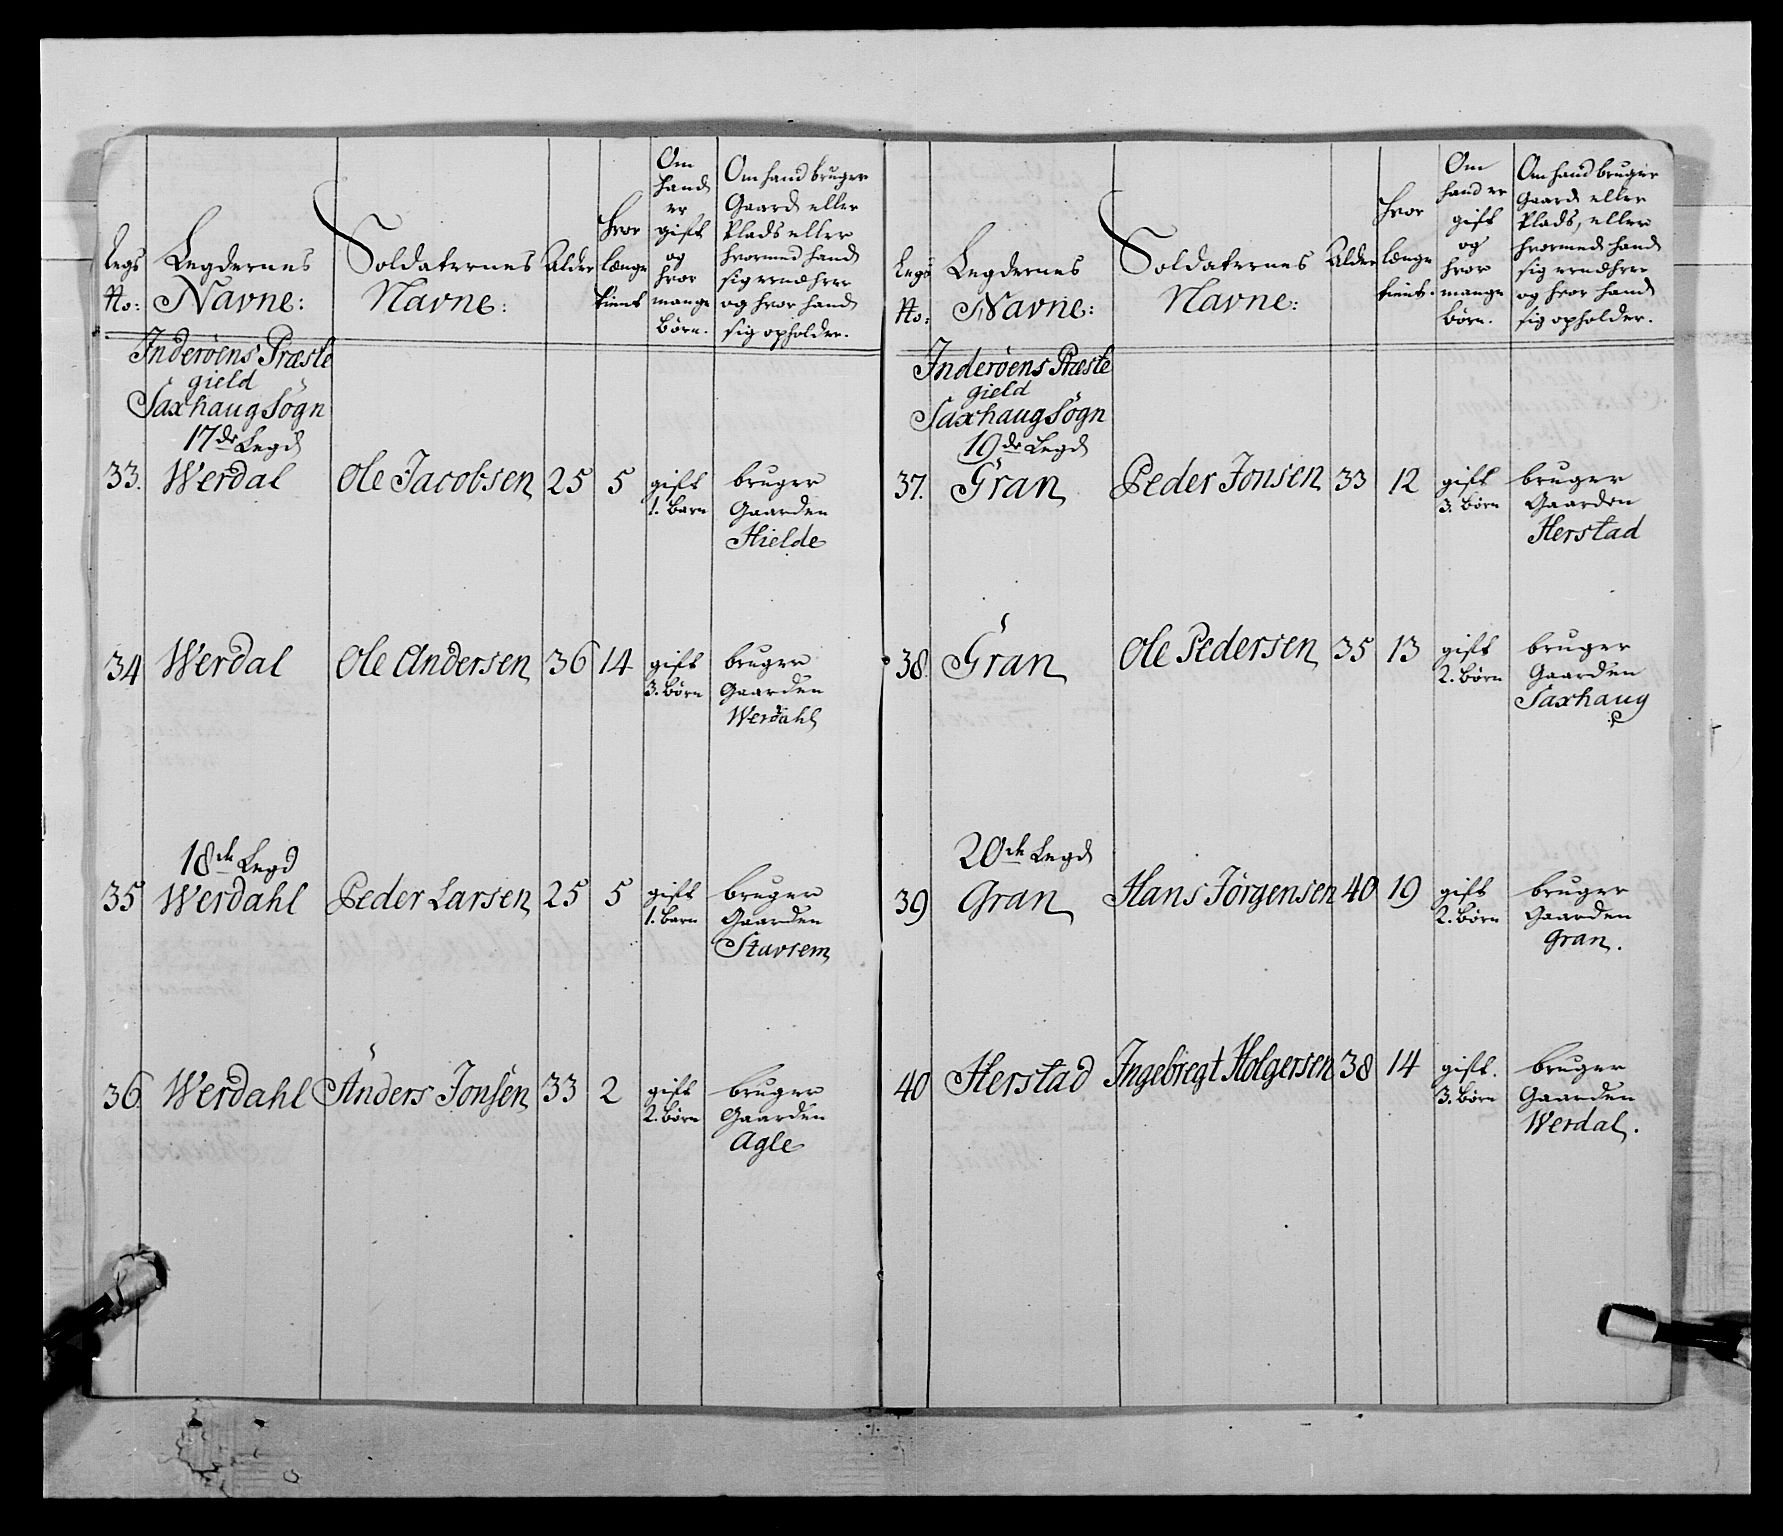 Legs
No:
Legdernes
Navne:
Soldaternes
Navne:
Alder
hvor
længe
tient
Om
hand
er
gift
og
hvor
mange
börn.
Om hand bruger
Gaard eller
Plads eller
hvormed hand
sig ernæhrer
og hvor hand
sig opholder.
Inderöens Præste
gield
Saxhaug Sogn
17de Legd
33. Werdal Ole Jacobsen 25 5 gift bruger
1. barn Gaarden
Hielde
34 Werdal Ole Andersen 36 14 gift bruger
3. börn Gaarden
Werdahl
18de Legd
35 Werdahl Peder Larsen 25 5 gift bruger
1. barn Gaarden
Stavrem
36 Werdahl Anders Jonsen 33 2 gift bruger
2. börn Gaarden
Agle
Legs
No:
Legdernes
Navne:
Soldaternes
Navne:
Alder
hvor
længe
tient.
Om
hand er
gift
og
hvor
mange
börn.
Om hand bruger
Gaard eller
Plads, eller
hvormed hand
sig ernæhrer
og hvor hand
sig opholder.
Inderöens Præste
gield
Saxhaug Sogn
19de Legd
37. Gran Peder Jonsen 33 12 gift bruger
3. börn Gaarden
Herstad
38. Gran Ole Pedersen 35 13 gift bruger
2. börn Gaarden
Saxhaug
20de Legd
39 Gran Hans Jörgensen 40 19 gift bruger
2. börn Gaarden
Gran.
40 Herstad Ingebregt Holgersen 38 14 gift. bruger
3. börn Gaarden
Werdal.